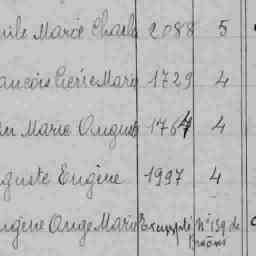 mile Marie Charle 2088 5
ancois Pierre Mary 1729 4
an Marie August 1764 4
guste Eugène 1997 4
ugène Ange Marie Exempté N° 139 de